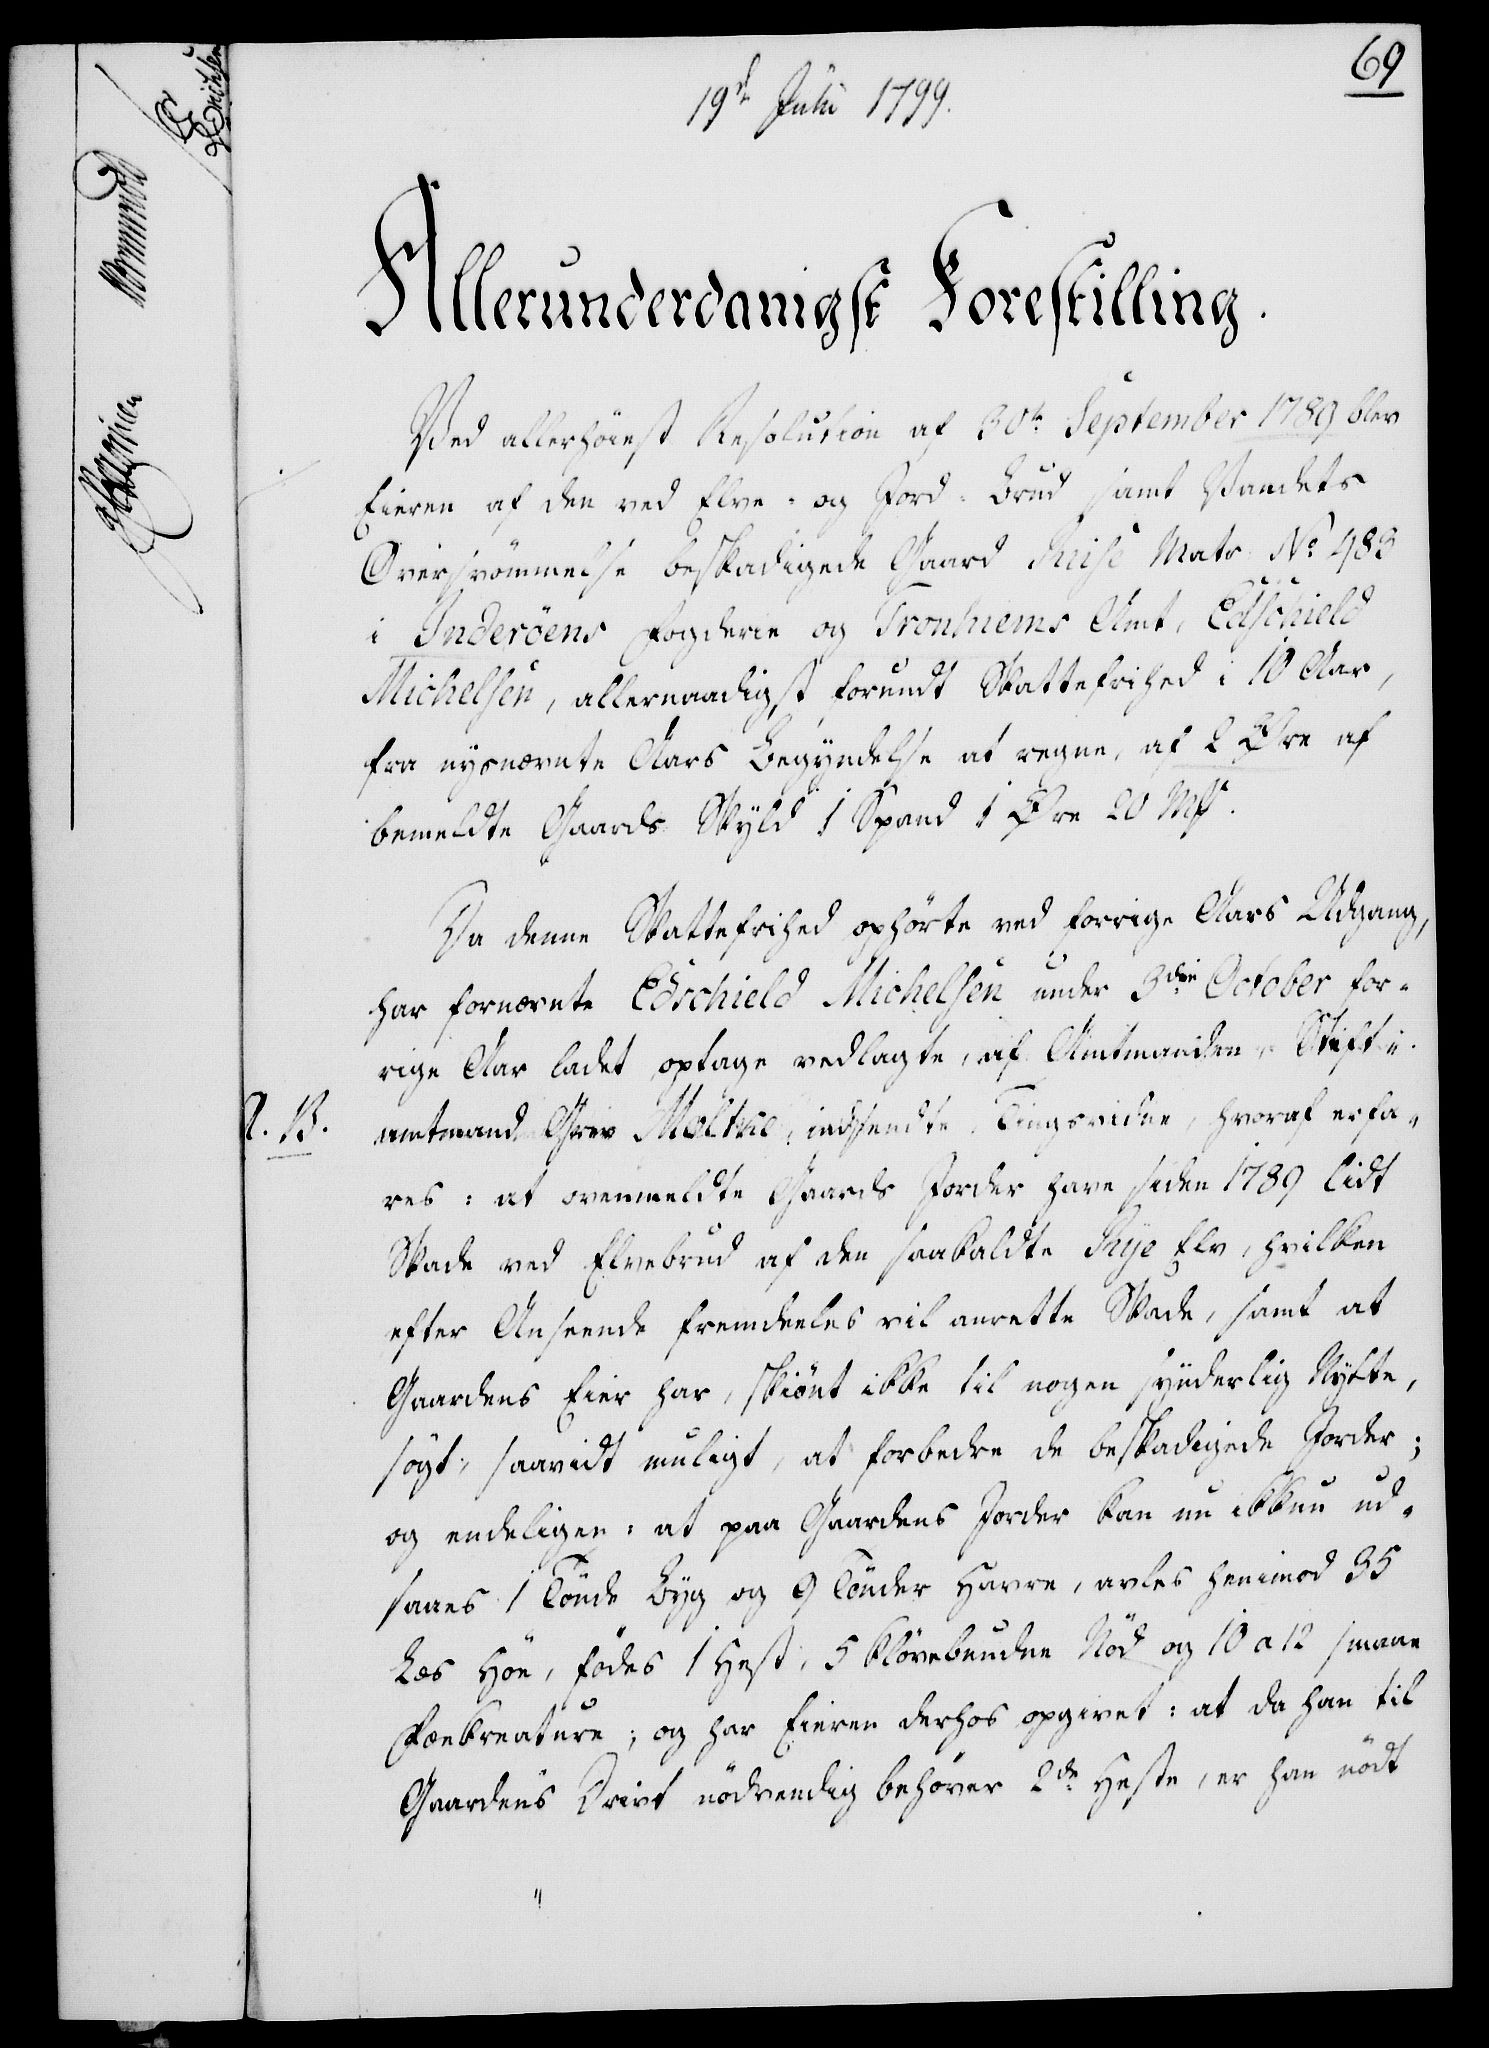 69
19de Julii 1799.
Allerunderdanigst Forestilling.
Ved allerhöiest Resolution af 30te September 1789 blev
Eieren af den ved Elve- og Jord-Brud samt Vandets
Oversvömmelse beskadigede Gaard Reise Matr. No 483
i Inderöens Fogderie og Tronhiems Amt, Edschield
Michelsen, allernaadigst forundt Skattefrihed i 10 Aar,
fra nysnævnte Aars Begyndelse at regne, af 2 Øre af
bemeldte Gaards Skyld 1 Spand 1 Øre 20 Mk.
Da denne Skattefrihed ophörte ved forrige Aars Udgang,
har fornævnte Edschield Michelsen under 3die October for-
rige Aar ladet optage vedlagte, af Amtmanden, Stift-
amtmand Grev Moltke, indsendte Tingsvidne, hvoraf erfa-
res: at ovenmeldte Gaards Jorder have siden 1789 lidt
Skade ved Elvebrud af den saakaldte Rye Elv, hvilken
efter Anseende fremdeeles vil anrette Skade, samt at
Gaardens Eier har, skiönt ikke til nogen synderlig Nytte,
sögt, saavidt muligt, at forbedre de beskadigede Jorder;
og endeligen: at paa Gaardens Jorder kan nu ikkun ud-
saaes 1 Tönde Byg og 9 Tönder Havre, avles henimod 35
Læs Höe, födes 1 Hest, 5 klövebundne Nöd og 10 a 12 smaae
Fækreature; og har Eieren derhos opgivet: at da han til
Gaardens Drivt nödvendig behöver 2de Heste, er han nödt